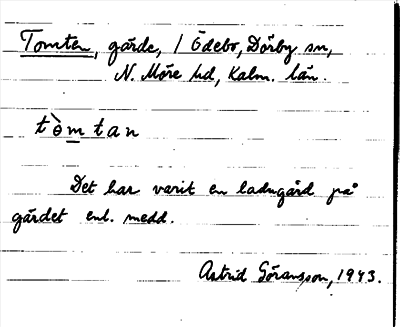 Tomten, gärde, / Ödebo, Dörby sn,
N. Möre hd, Kalm. län.
tòm̲tan
Det har varit en ladugård på
gärdet enl. medd.
Astrid Göransson, 1943.